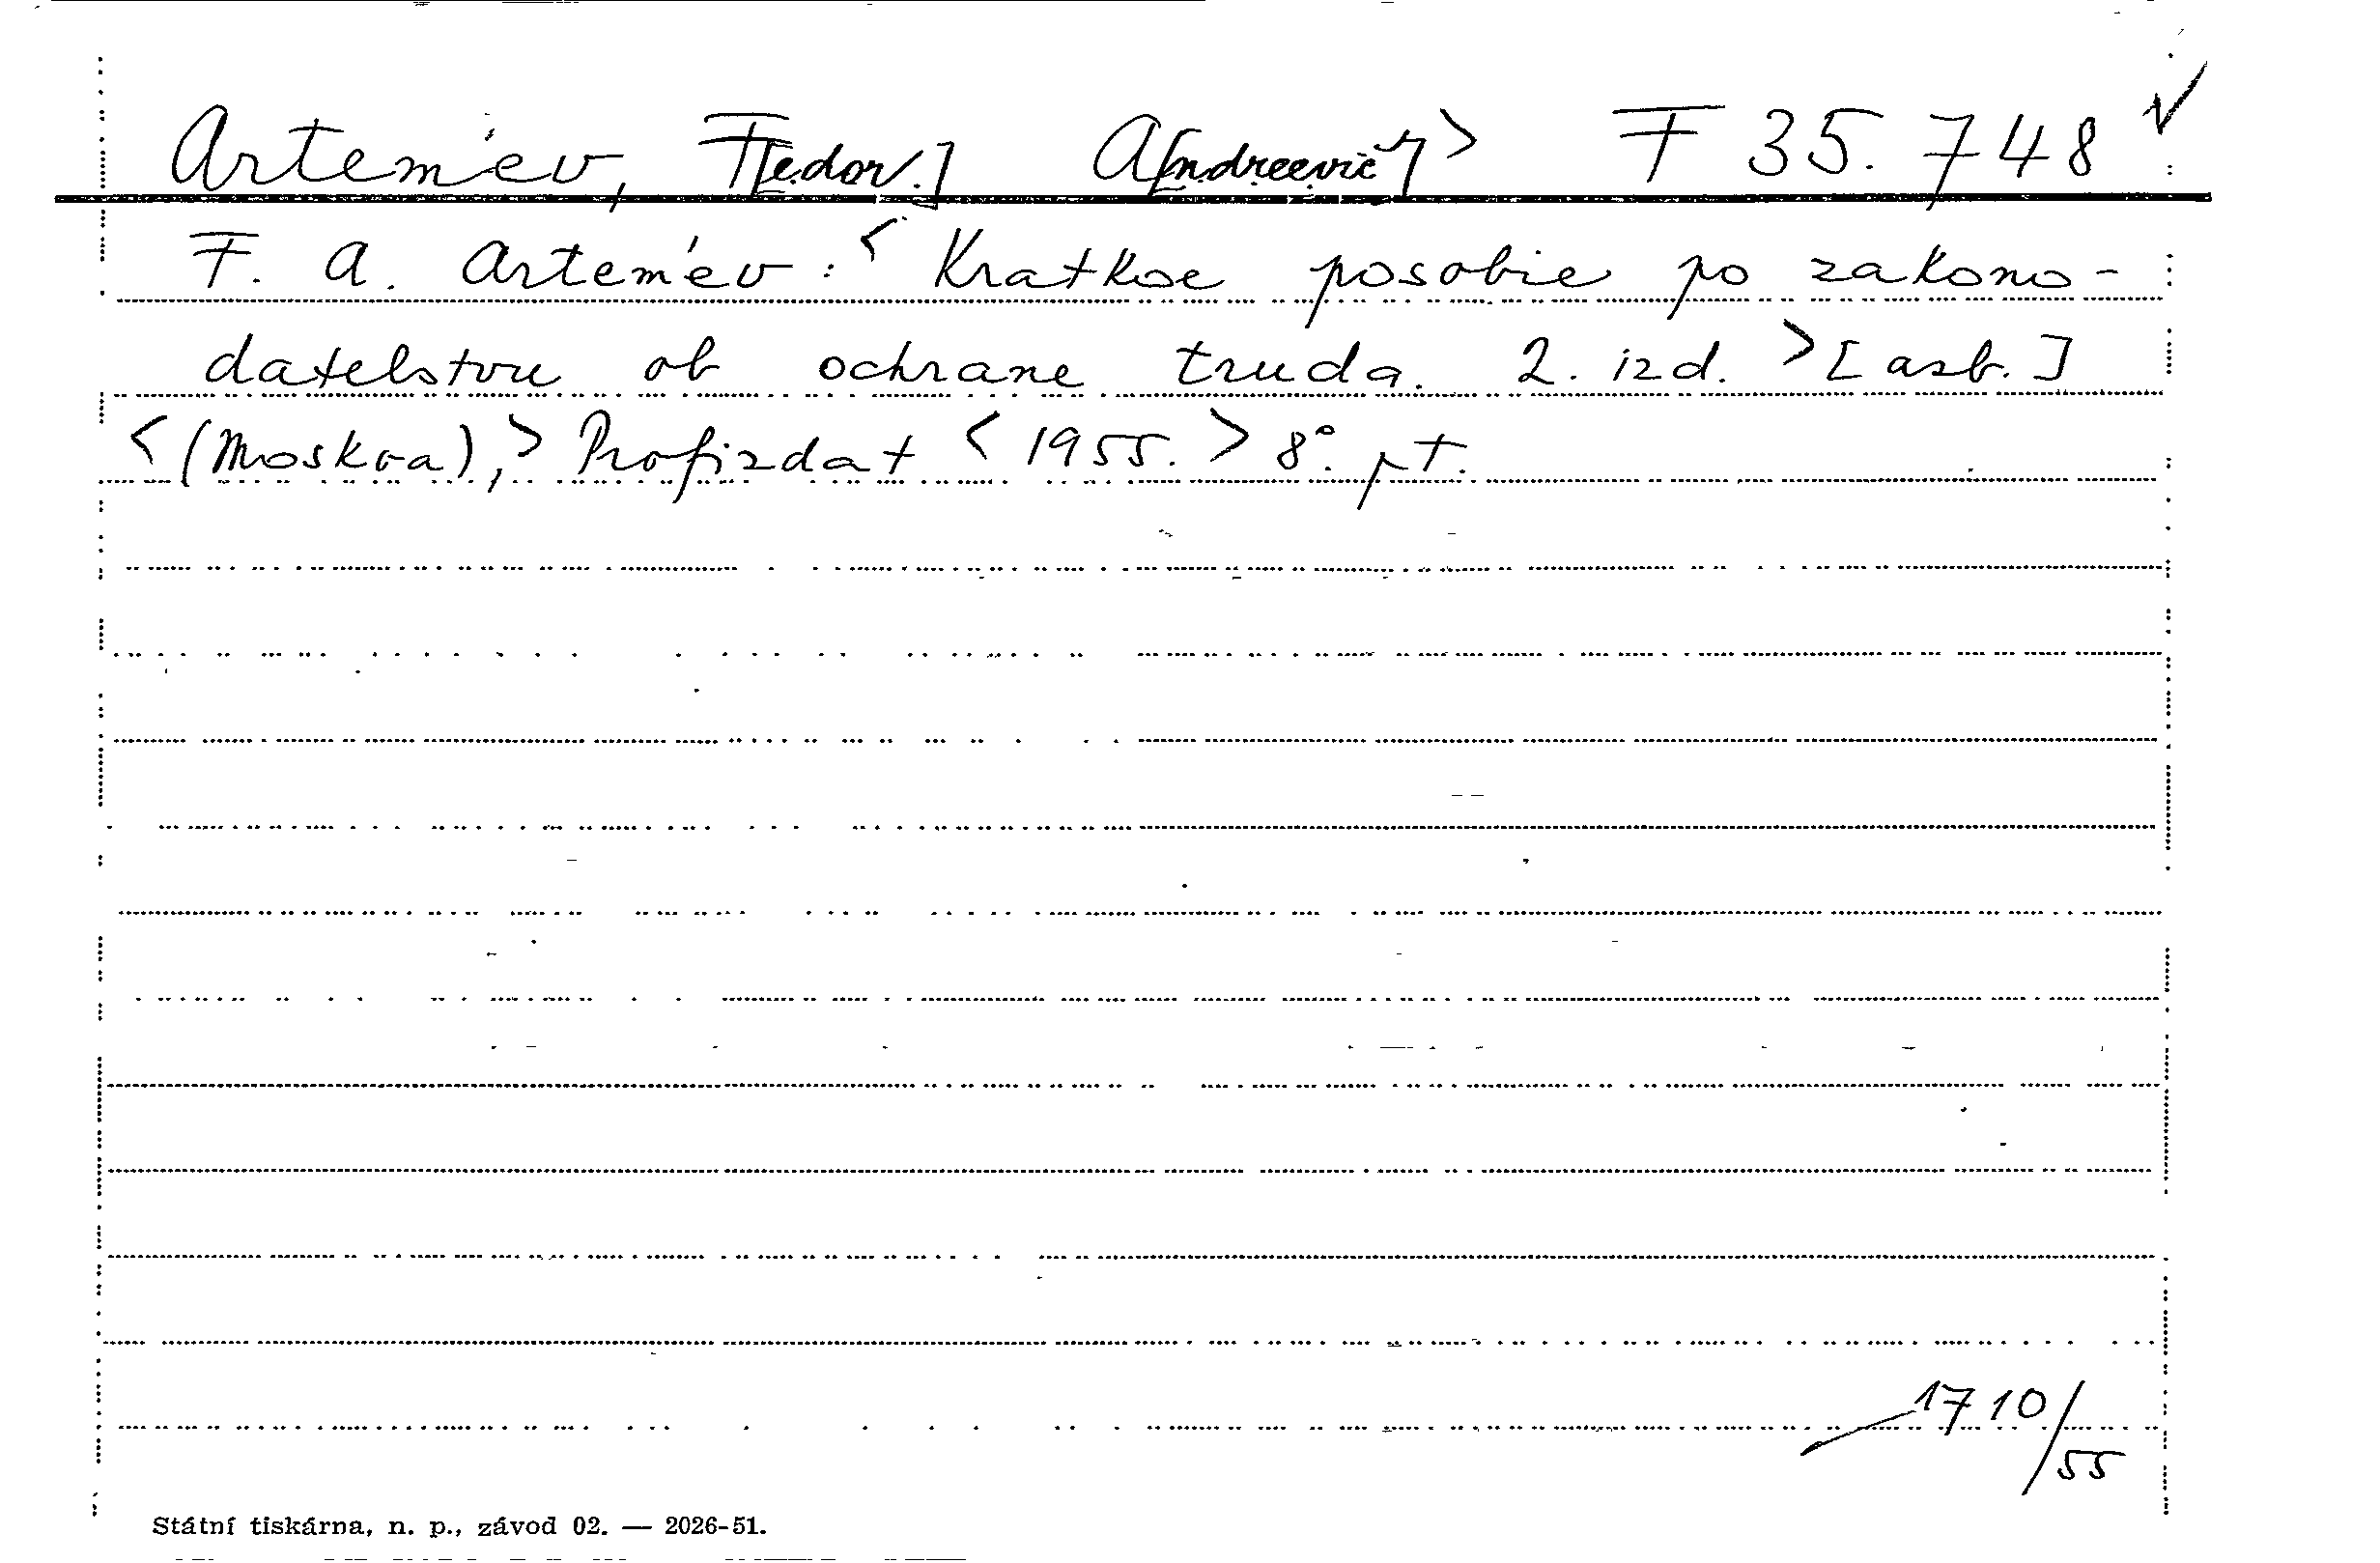 Artem'ev, F[edor.] A[ndreevič]> F 35.748 ✓
F. A. Artem'ev: < Kratkoe posobie po zakono-
datelstvu ob ochrane truda. 2. izd. > [azb.]
<(Moskva),> Profizdat <1955.> 8°. pt.
1710/
55
Státní tiskárna, n. p., závod 02. — 2026-51.